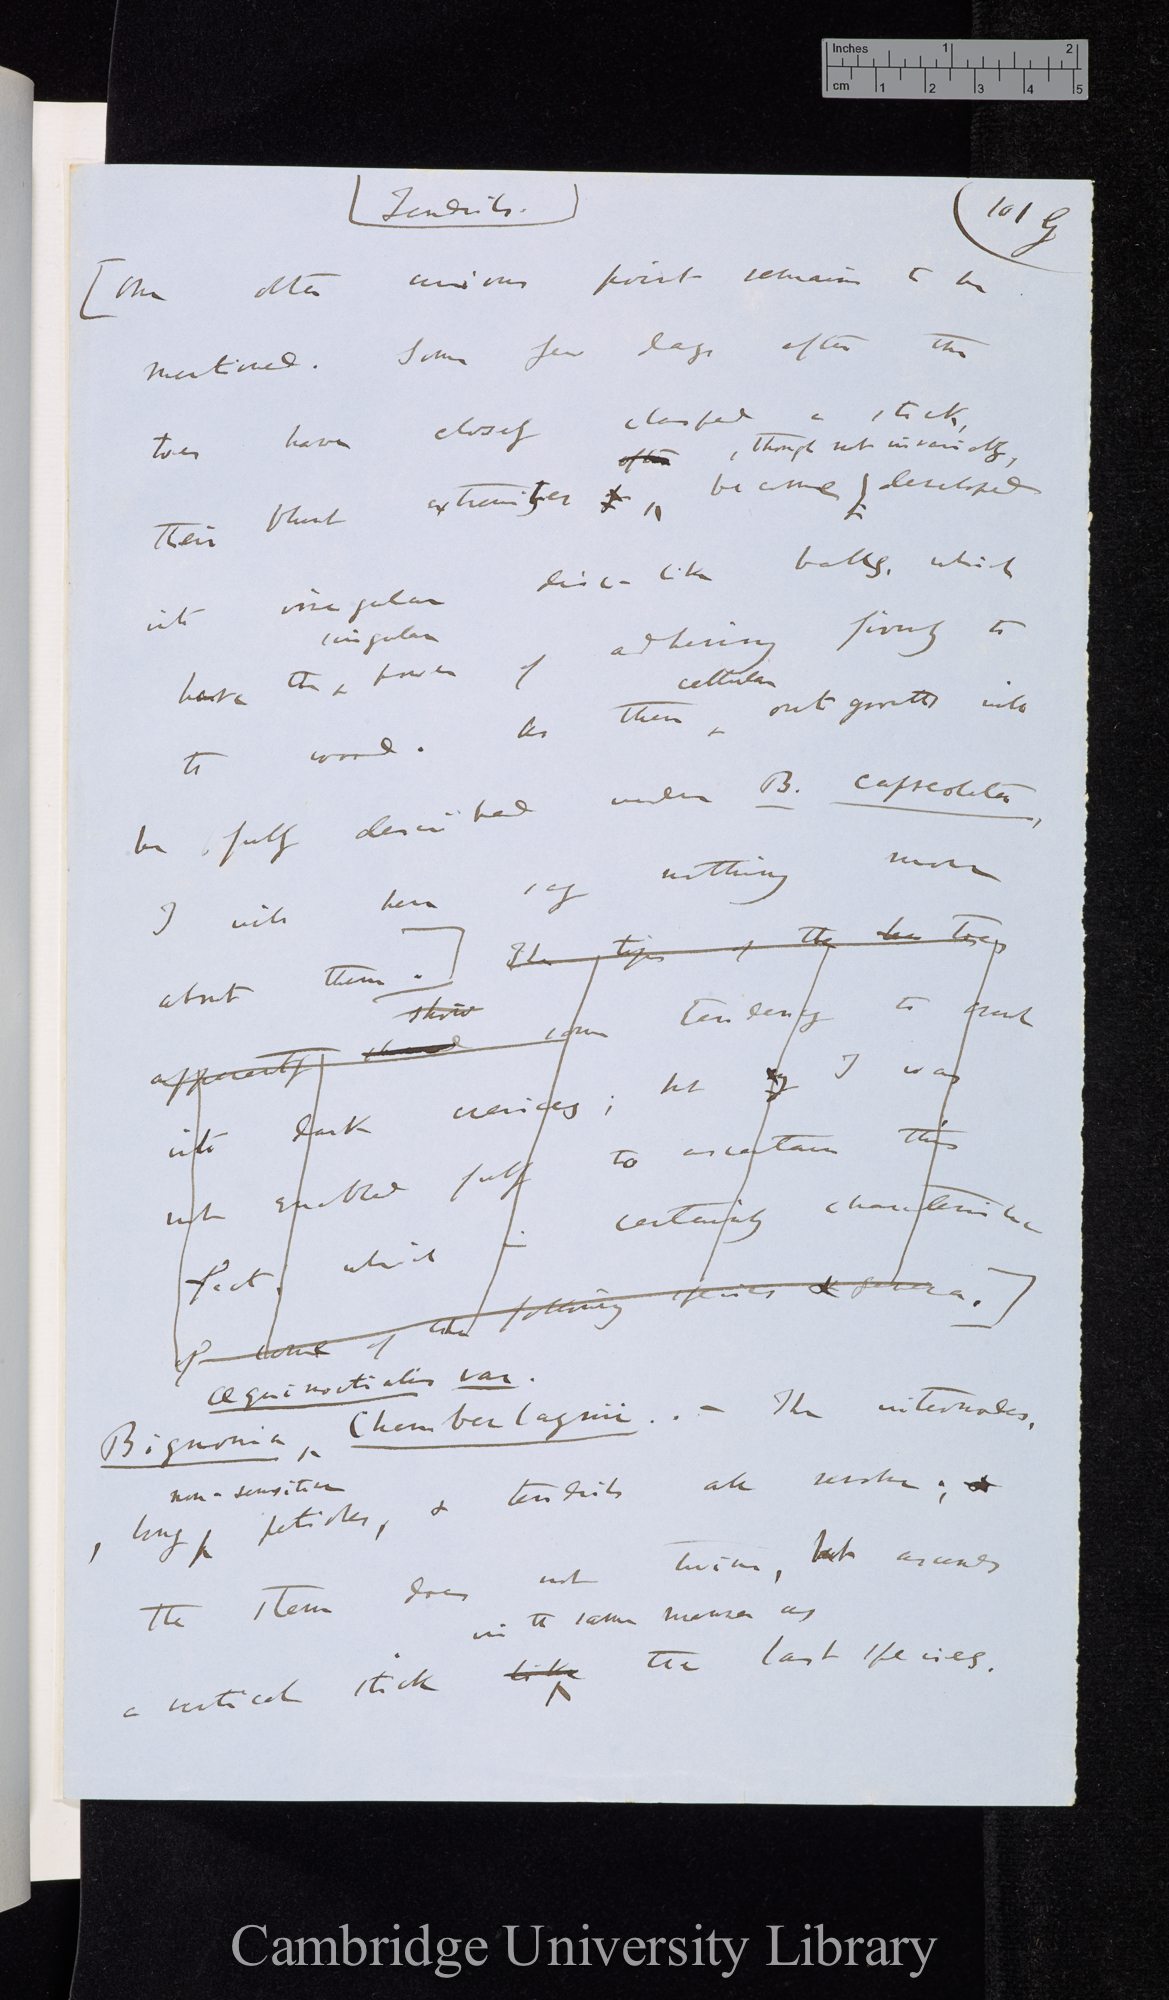 Inches 1 2
cm 1 2 3 4 5
[Tendrils.]
101 G
[One other curious point remains to be
mentioned. Some few days after the
toes have closely clasped a stick,
often , though not invariably,
their blunt extremities become developed
into irregular disc-like balls, which
singular
have the power of adhering firmly to
cellular
to wood. As these outgrowths will
be fully described under B. capreolata,
I will here say nothing more
about them.] The tips of the toes
show
apparently showed some tendency to crawl
into dark crevices; but I was
not enabled fully to ascertain this
fact, which is certainly characteristic
of some of the following species & genera.]
æquinoctialis var.
Bignonia, Chamberlaynii.. – The internodes,
non-sensitive
, long petioles, & tendrils all revolve; &
the stem does not twine, but ascends
in the same manner as
a vertical stick like the last species.
Cambridge University Library